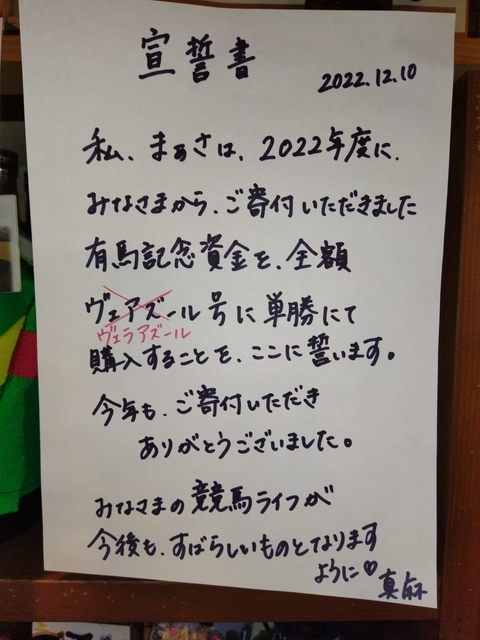 宣誓書
2022.12.10
私、まあさは、2022年度に、
みなさまから、ご寄付いただきました
有馬記念資金を、全額
ヴェアズール号に単勝にて
ヴェラアズール
購入することを、ここに誓います。
今年も、ご寄付いただき
ありがとうございました。
みなさまの競馬ライフが
今後も、すばらしいものとなります
ように♡
真麻